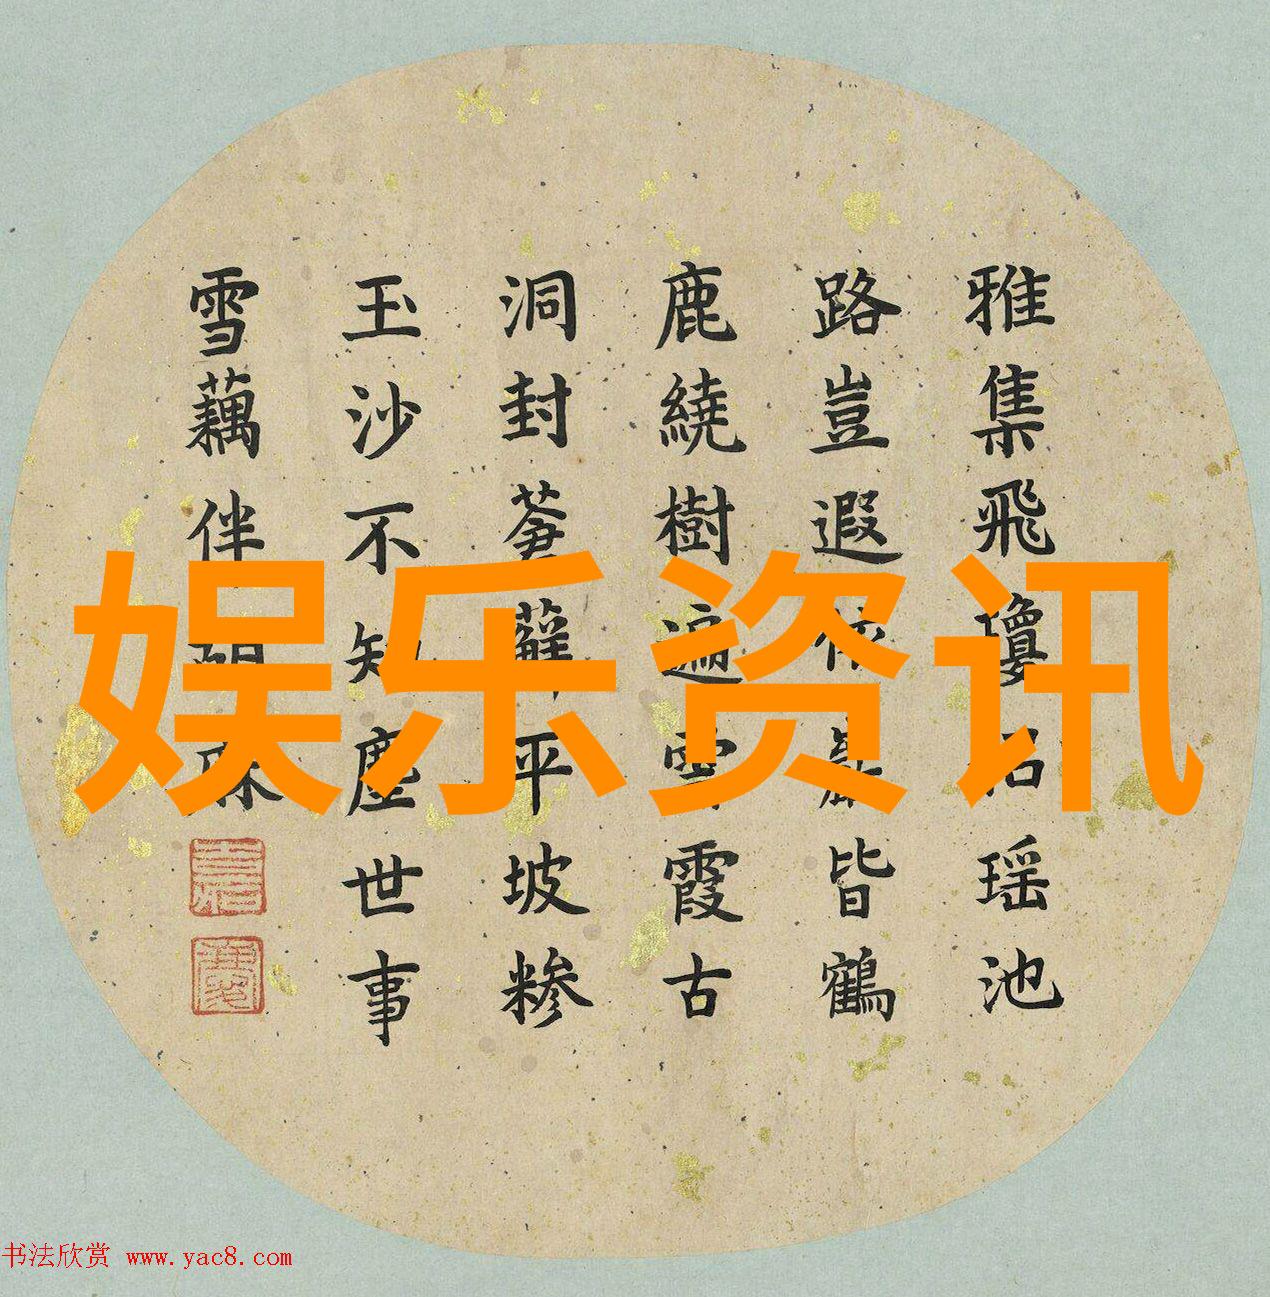 雅集飛瓊 瑶池
路豈遐 皆鶴
鹿繞樹遍雲霞古
洞封蒼蘚平坡糝
玉沙不知塵世事
雪藕伴
娱乐资讯
书法欣赏 www.yac8.com